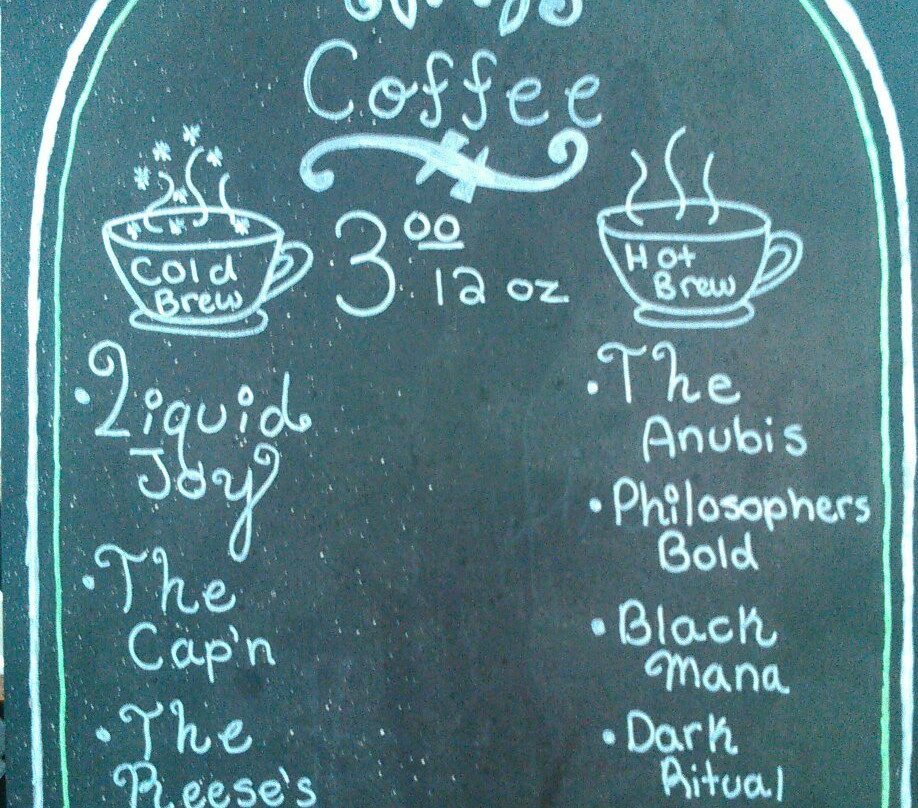 Coffee
3.00
12 oz
Cold
Brew
• Liquid
Joy
• The
Cap'n
• The
Reese's
Hot
Brew
• The
Anubis
• Philosophers
Bold
• Black
Mana
• Dark
Ritual